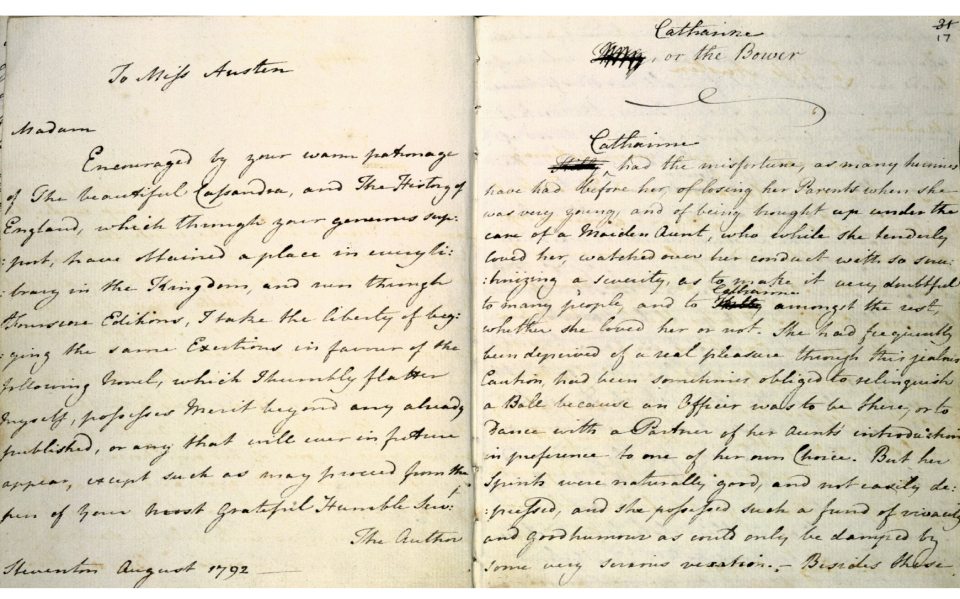 To Miss Austen
Madam
Encouraged by your warm patronage
of The beautiful Cassandra, and The History of
England, which through your generous sup:
:port, have obtained a place in every li:
:brary in the Kingdom, and run through
threescore Editions, I take the liberty of beg:
:ging the same Exertions in favour of the
following Novel, which I humbly flatter
myself, possesses Merit beyond any already
published, or any that will ever in future
appear, except such as may proceed from the
pen of Your Most Grateful Humble Servt.
The Author
Steventon August 1792
31
17
Catharine
, or the Bower
Catharine
had the misfortune, as many heroines
have had before her, of losing her Parents when she
was very young, and of being brought up under the
care of a Maiden Aunt, who while she tenderly
loved her, watched over her conduct with so scru:
:tinizing a severity, as to make it very doubtful
Catharine
to many people, and to Kitty amongst the rest,
whether she loved her or not. She had frequently
been deprived of a real pleasure through this jealous
Caution, had been sometimes obliged to relinquish
a Ball because an Officer was to be there, or to
Dance with a Partner of her Aunt's introduction
in preference to one of her own Choice. But her
Spirits were naturally good, and not easily de:
:pressed, and she possessed such a fund of vivacity
and good humour as could only be damped by
some very serious vexation. - Besides these